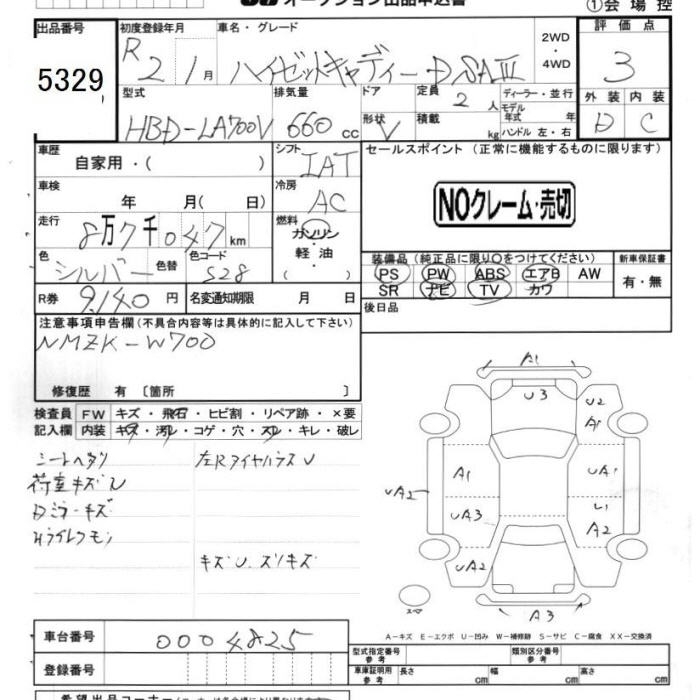 オークション出品申込書
①会場控
出品番号 初度登録年月 車名・グレード 2WD ・ 4WD 評価点
5329 R2 1月 ハイゼットキャディー D SAⅢ 3
型式 排気量 ドア 定員 2人 ディーラー・並行 外装 内装
HBD-LA700V 660cc 形状 V 積載 kg モデル年式 年式 ハンドル 左・右 D C
車歴 自家用・( ) シフト IAT セールスポイント (正常に機能するものに限ります)
車検 年 月(日) 冷房 AC NOクレーム・売切
走行 8万7千047km 燃料 ガソリン・軽油・( )
色 シルバー 色替 色コード S28 装備品 (純正品に限り○をつけてください) 新車保証書
PS PW ABS エアB AW 有・無
SR ナビ TV カワ
R券 9,140円 名変通知期限 月 日 後日品
注意事項申告欄 (不具合内容等は具体的に記入して下さい)
NMZK-W700
修復歴 有 〔箇所 〕
検査員 FW キズ・飛石・ヒビ割・リペア跡・×要
記入欄 内装 キズ・汚れ・コゲ・穴・スレ・キレ・破レ
シートヘタリ 左RタイヤハウスU
荷室キズU
Dミラーキズ
キズ U. スリキズ
A1
U3 U2
A1
A1 UA1
UA2 UA3 L1
A2
UA2 UA2
スペア A3
A-キズ E-エクボ U-凹み W-補修跡 S-サビ C-腐食 XX-交換済
車台番号 0004825 型式指定番号 参考 類別区分番号 参考
登録番号 車庫証明用 参考 長さ cm 幅 cm 高さ cm